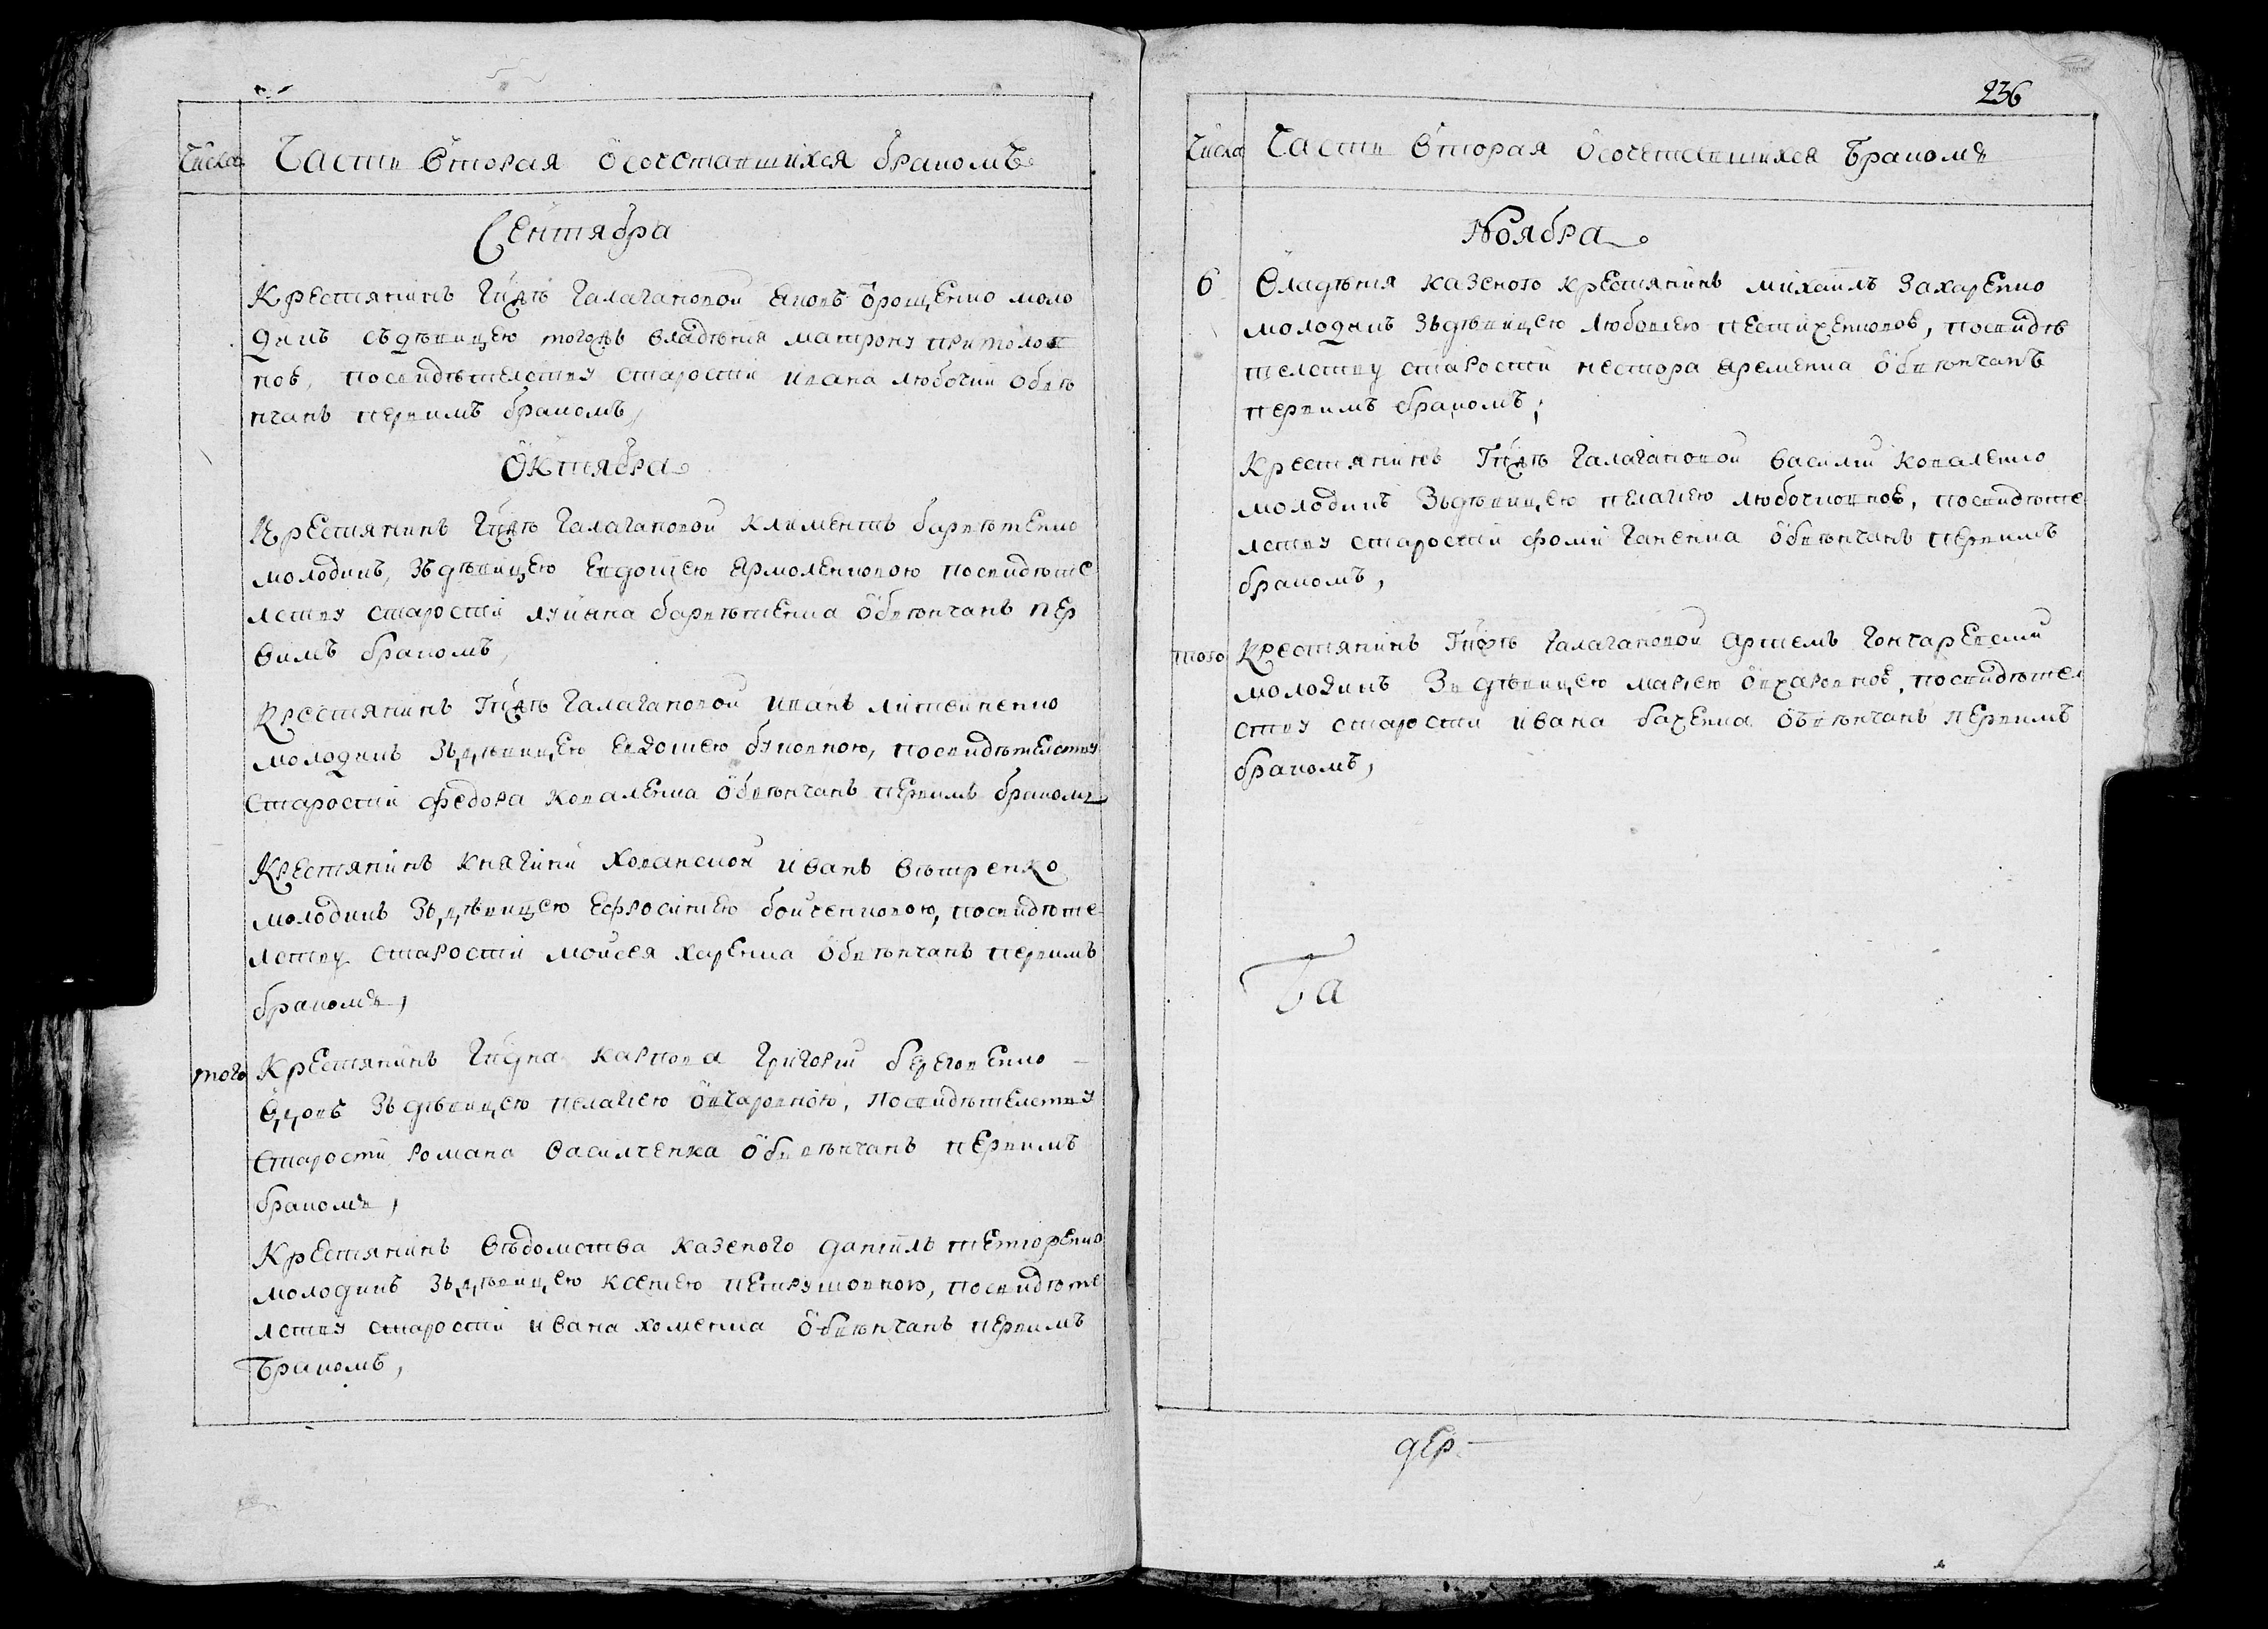 Числа Часть вторая о сочетавшихся бракомъ
Сентября
Крестянинъ Гпжѣ Галагановой Яковъ Орощенко моло
дикъ съ дѣвицею тогожъ владѣния Матрону
нов, посвидѣтелству старости Ивана Любочки обвѣ
нчанъ первимъ бракомъ,
Октября
Крестянинъ Гпжѣ Галагановой Климентъ Барвѣтенко
молодикъ, зъ дѣвицею Евдокиею Ярмоленковою посвидѣте
лству старости Лукяна Барвѣтенка обвѣнчанъ пер
вимъ бракомъ,
Крестянинъ Гпжѣ Галагановой Иванъ Литвиненко
молодикъ зъ дѣвицею Евдокиею Буковною, посвидѣтелству
старости Федора Коваленка обвѣнчанъ первимъ бракомъ
Крестянинъ княгини Хованской Иванъ Вѣтренко
молодикъ зъ дѣвицею Ефросиниею Бойченковою, посвидѣте
лству старости Мойсея Харенка обвѣнчанъ первимъ
бракомъ,
того Крестянинъ Гпдна Карпова Григорий Береговенко
вдовъ зъ дѣвицею Пелагиею Овчаровною, посвидѣтелству
старости Романа Василченка обвѣнчанъ первимъ
бракомъ,
Крестянинъ вѣдомства казеного Даниилъ Тетюренко
молодикъ зъ дѣвицею Ксениею Петрушовною, посвидѣте
лству старости Ивана Хоменка обвѣнчанъ первимъ
бракомъ,
236
Числа Часть вторая о сочетавшихся бракомъ
Ноября
6 Владѣния казеного крестянинъ Михаилъ Захаренко
молодикъ зъ дѣвицею Любовию Пестихенковов, посвидѣ
телству старости Нестора Яременка обвѣнчанъ
первимъ бракомъ,
Крестянинъ Гпжѣ Галагановой Василий Коваленко
молодикъ зъ дѣвицею Пелагиею Любочковнов, посвидѣте
лству старости Фоми Ганенка обвѣнчанъ первимъ
бракомъ,
того Крестянинъ Гпжѣ Галагановой Артемъ Гончаревский
молодикъ зъ дѣвицею Мариею Овхаровнов, посвидѣтел
ству старости Ивана Баченка обвѣнчанъ первимъ
бракомъ,
Га
дер